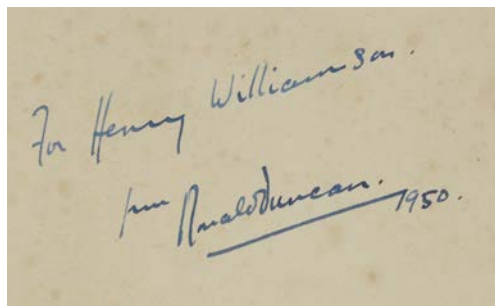 For Henry Williamson.
from Ronald Duncan.
1950.